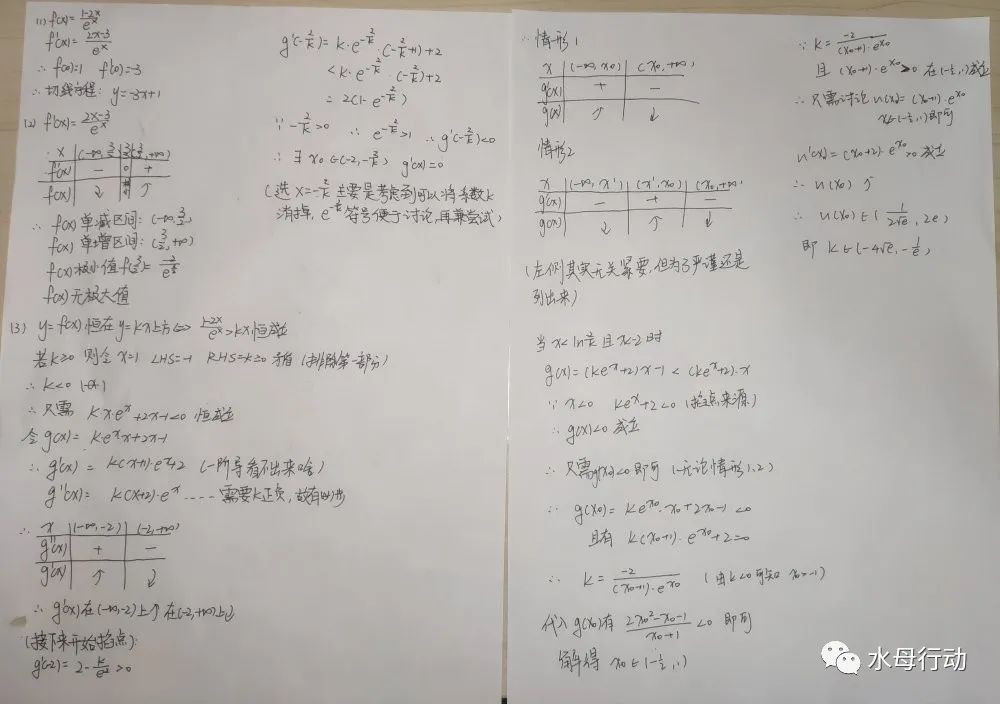 (1) f(x)=(1-2x)/e^x
f'(x)=(2x-3)/e^x
∴ f(0)=1 f'(0)=-3
∴ 切线方程: y=-3x+1
(2) f'(x)=(2x-3)/e^x
x | (-∞, 3/2) | 3/2 | (3/2, +∞)
f'(x) | - | 0 | +
f(x) | ↓ | | ↑
∴ f(x)单减区间: (-∞, 3/2)
f(x)单增区间: (3/2, +∞)
f(x)极小值 f(3/2)=
f(x)无极大值
(3) y=f(x)恒在y=kx上方⇔ (1-2x)/e^x>kx恒成立
若k≥0 则令x=1 LHS=-1 RHS=k≥0 矛盾
∴ k<0
∴ 只需 k·x·e^x+2x-1<0 恒成立
令g(x)=k·e^x x+2x-1
∴ g'(x)=k(x+1)·e^x+2 (一阶导看不出来啥)
g''(x)=k(x+2)·e^x ---- 需要k正负, 故有
∴ x | (-∞,-2) | (-2,+∞)
g''(x) | + | -
g'(x) | ↑ | ↓
∴ g'(x)在(-∞,-2)上↑在(-2,+∞)上↓
(接下来开始找点):
g'(-2)=2-k/e²>0
g'(-2/k)=k·e^(-2/k)·(-2/k+1)+2
<k·e^(-2/k)·(-2/k)+2
=2(1-e^(-2/k))
∵ -2/k>0 ∴ e^(-2/k)>1 ∴ g'(-2/k)<0
∴ ∃ x₀∈(-2,-2/k) g'(x)=0
(选x=-2/k主要是考虑到可以将系数k
消掉, 符号便于讨论, 再兼尝试)
∴ 情形1
x | (-∞, x₀) | (x₀, +∞)
g'(x) | + | -
g(x) | ↑ | ↓
情形2
x | (-∞, x') | (x', x₀) | (x₀, +∞)
g'(x) | - | + | -
g(x) | ↓ | ↑ | ↓
(左侧其实无关紧要, 但为了严谨还是
列出来)
当 且x<-2时
g(x)=(ke^x+2)x-1<(ke^x+2)·x
∵ x<0 ke^x+2<0 (找点来源)
∴ g(x)<0 成立
∴ 只需g(x₀)<0即可 (无论情形1,2)
∴ g(x₀)=ke^x₀·x₀+2x₀-1<0
且有 k(x₀+1)·e^x₀+2=0
∴ k=-2/((x₀+1)·e^x₀) (由k<0可知x₀>-1)
代入g(x₀)有 (2x₀²-x₀-1)/(x₀+1)<0 即可
解得 x₀∈(-1/2,1)
∵ k=-2/((x₀+1)·e^x₀)
且 (x₀+1)·e^x₀>0 在(-1/2,1)成立
∴ 只需讨论u(x₀)=(x₀+1)·e^x₀
x∈(-1/2,1)即可
u'(x)=(x₀+2)·e^x₀>0 成立
∴ u(x₀) ↑
∴ u(x₀)∈(1/(2√e), 2e)
即 k∈(-4√e, -1/e)
水母行动